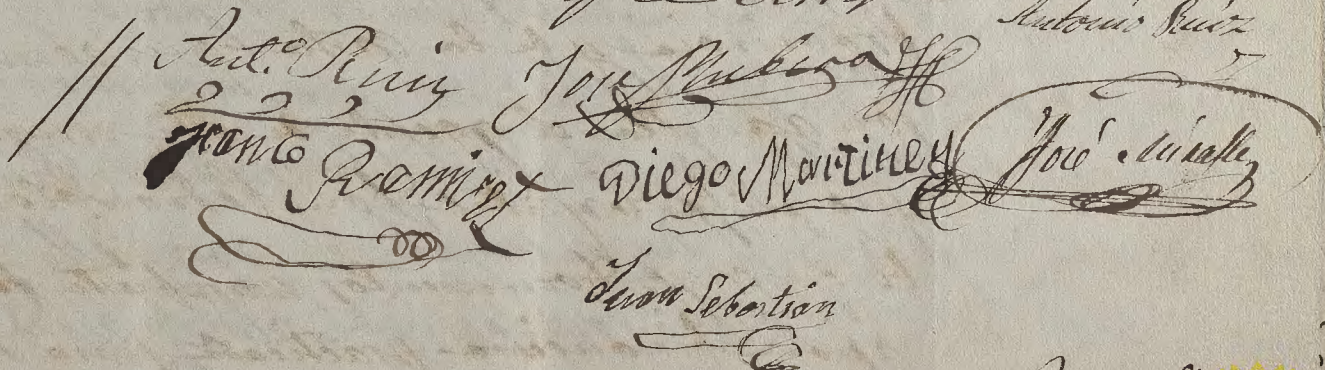 Antonio Ruiz
Antº Ruiz José Rubira
Franco Ramirez Diego Martinez José Miralles
Juan Sebastián